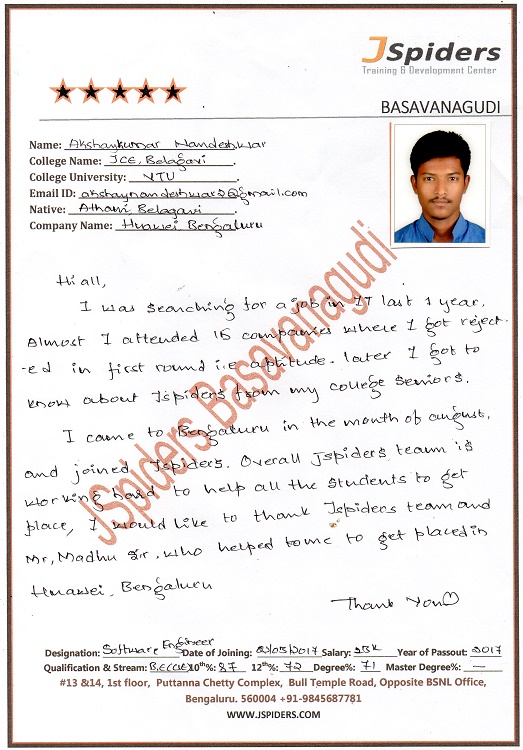 JSpiders
Training & Development Center
BASAVANAGUDI
Name: Akshaykumar Nandeshwar
College Name: JCE, Belagavi.
College University: VTU.
Email ID: akshaynandeshwar2@gmail.com
Native: Athani Belagavi.
Company Name: Huawei Bengaluru
Hi all,
I was searching for a job in IT last 1 year.
Almost I attended 15 companies where I got reject
-ed in first round i.e aptitude. later I got to
know about Jspiders from my college seniors.
I came to Bengaluru in the month of august,
and joined Jspiders. Overall Jspiders team is
working hard to help all the students to get
place, I would like to thank Jspiders team and
Mr, Madhu sir, who helped to me to get placed in
Huawei, Bengaluru
Thank You
JSpiders Basavanagudi
Designation: Software Engineer Date of Joining: /05/2017 Salary: Year of Passout: 2017
Qualification & Stream: B.E(CSE) 10th%: 87 12th%: 72 Degree%: 71 Master Degree%: —
#13 &14, 1st floor, Puttanna Chetty Complex, Bull Temple Road, Opposite BSNL Office,
Bengaluru. 560004 +91-9845687781
WWW.JSPIDERS.COM